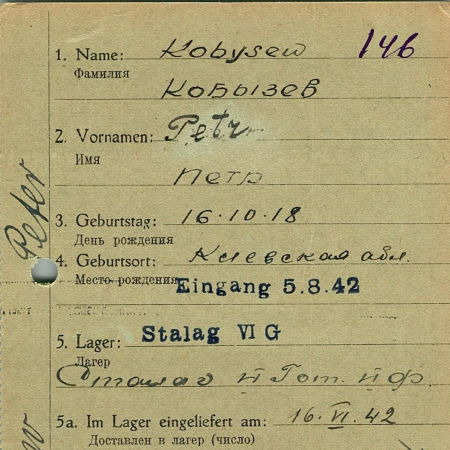 1. Name: Kobysew 146
Фамилия
Кобызев
2. Vornamen: Petr
Имя
Петр
3. Geburtstag: 16.10.18
День рождения
4. Geburtsort: Киевская обл.
Место рождения
Eingang 5.8.42
5. Lager: Stalag VI G
Лагер
Сталаг
5a. Im Lager eingeliefert am: 16.VI.42
Доставлен в лагер (число)
Peter